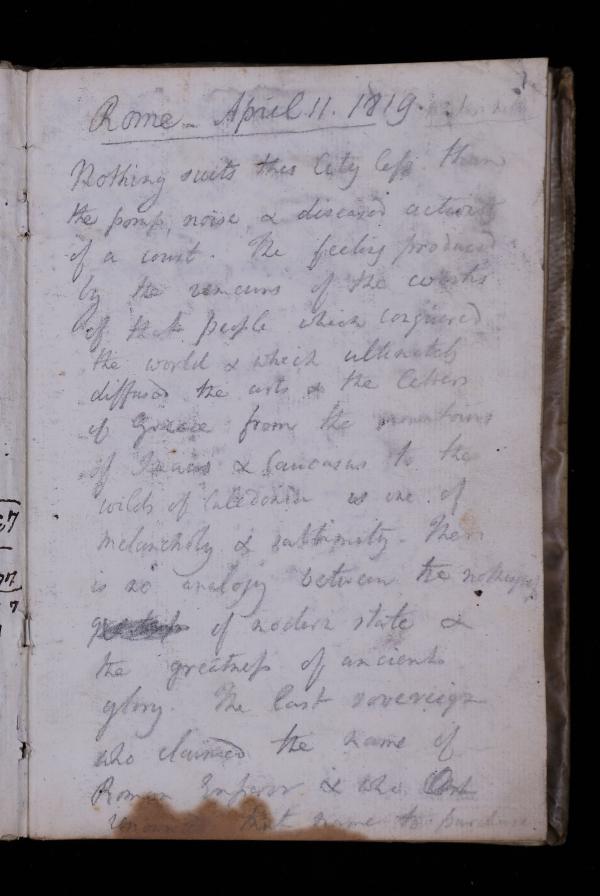 Rome - April 11. 1819
Nothing suits this City less than
the pomp, noise, & diseased activity
of a court. The feeling produced
by the remains of the works
of that people which conquered
the world & which ultimately
diffused the arts & the letters
of Greece from the mountains
of Taurus & Caucasus to the
wilds of Caledonia is one of
melancholy & sublimity. There
is no analogy between the nothingness
of modern state &
the greatness of ancient
glory. The last sovereign
who claimed the name of
Roman Emperor & who
that name to purchase